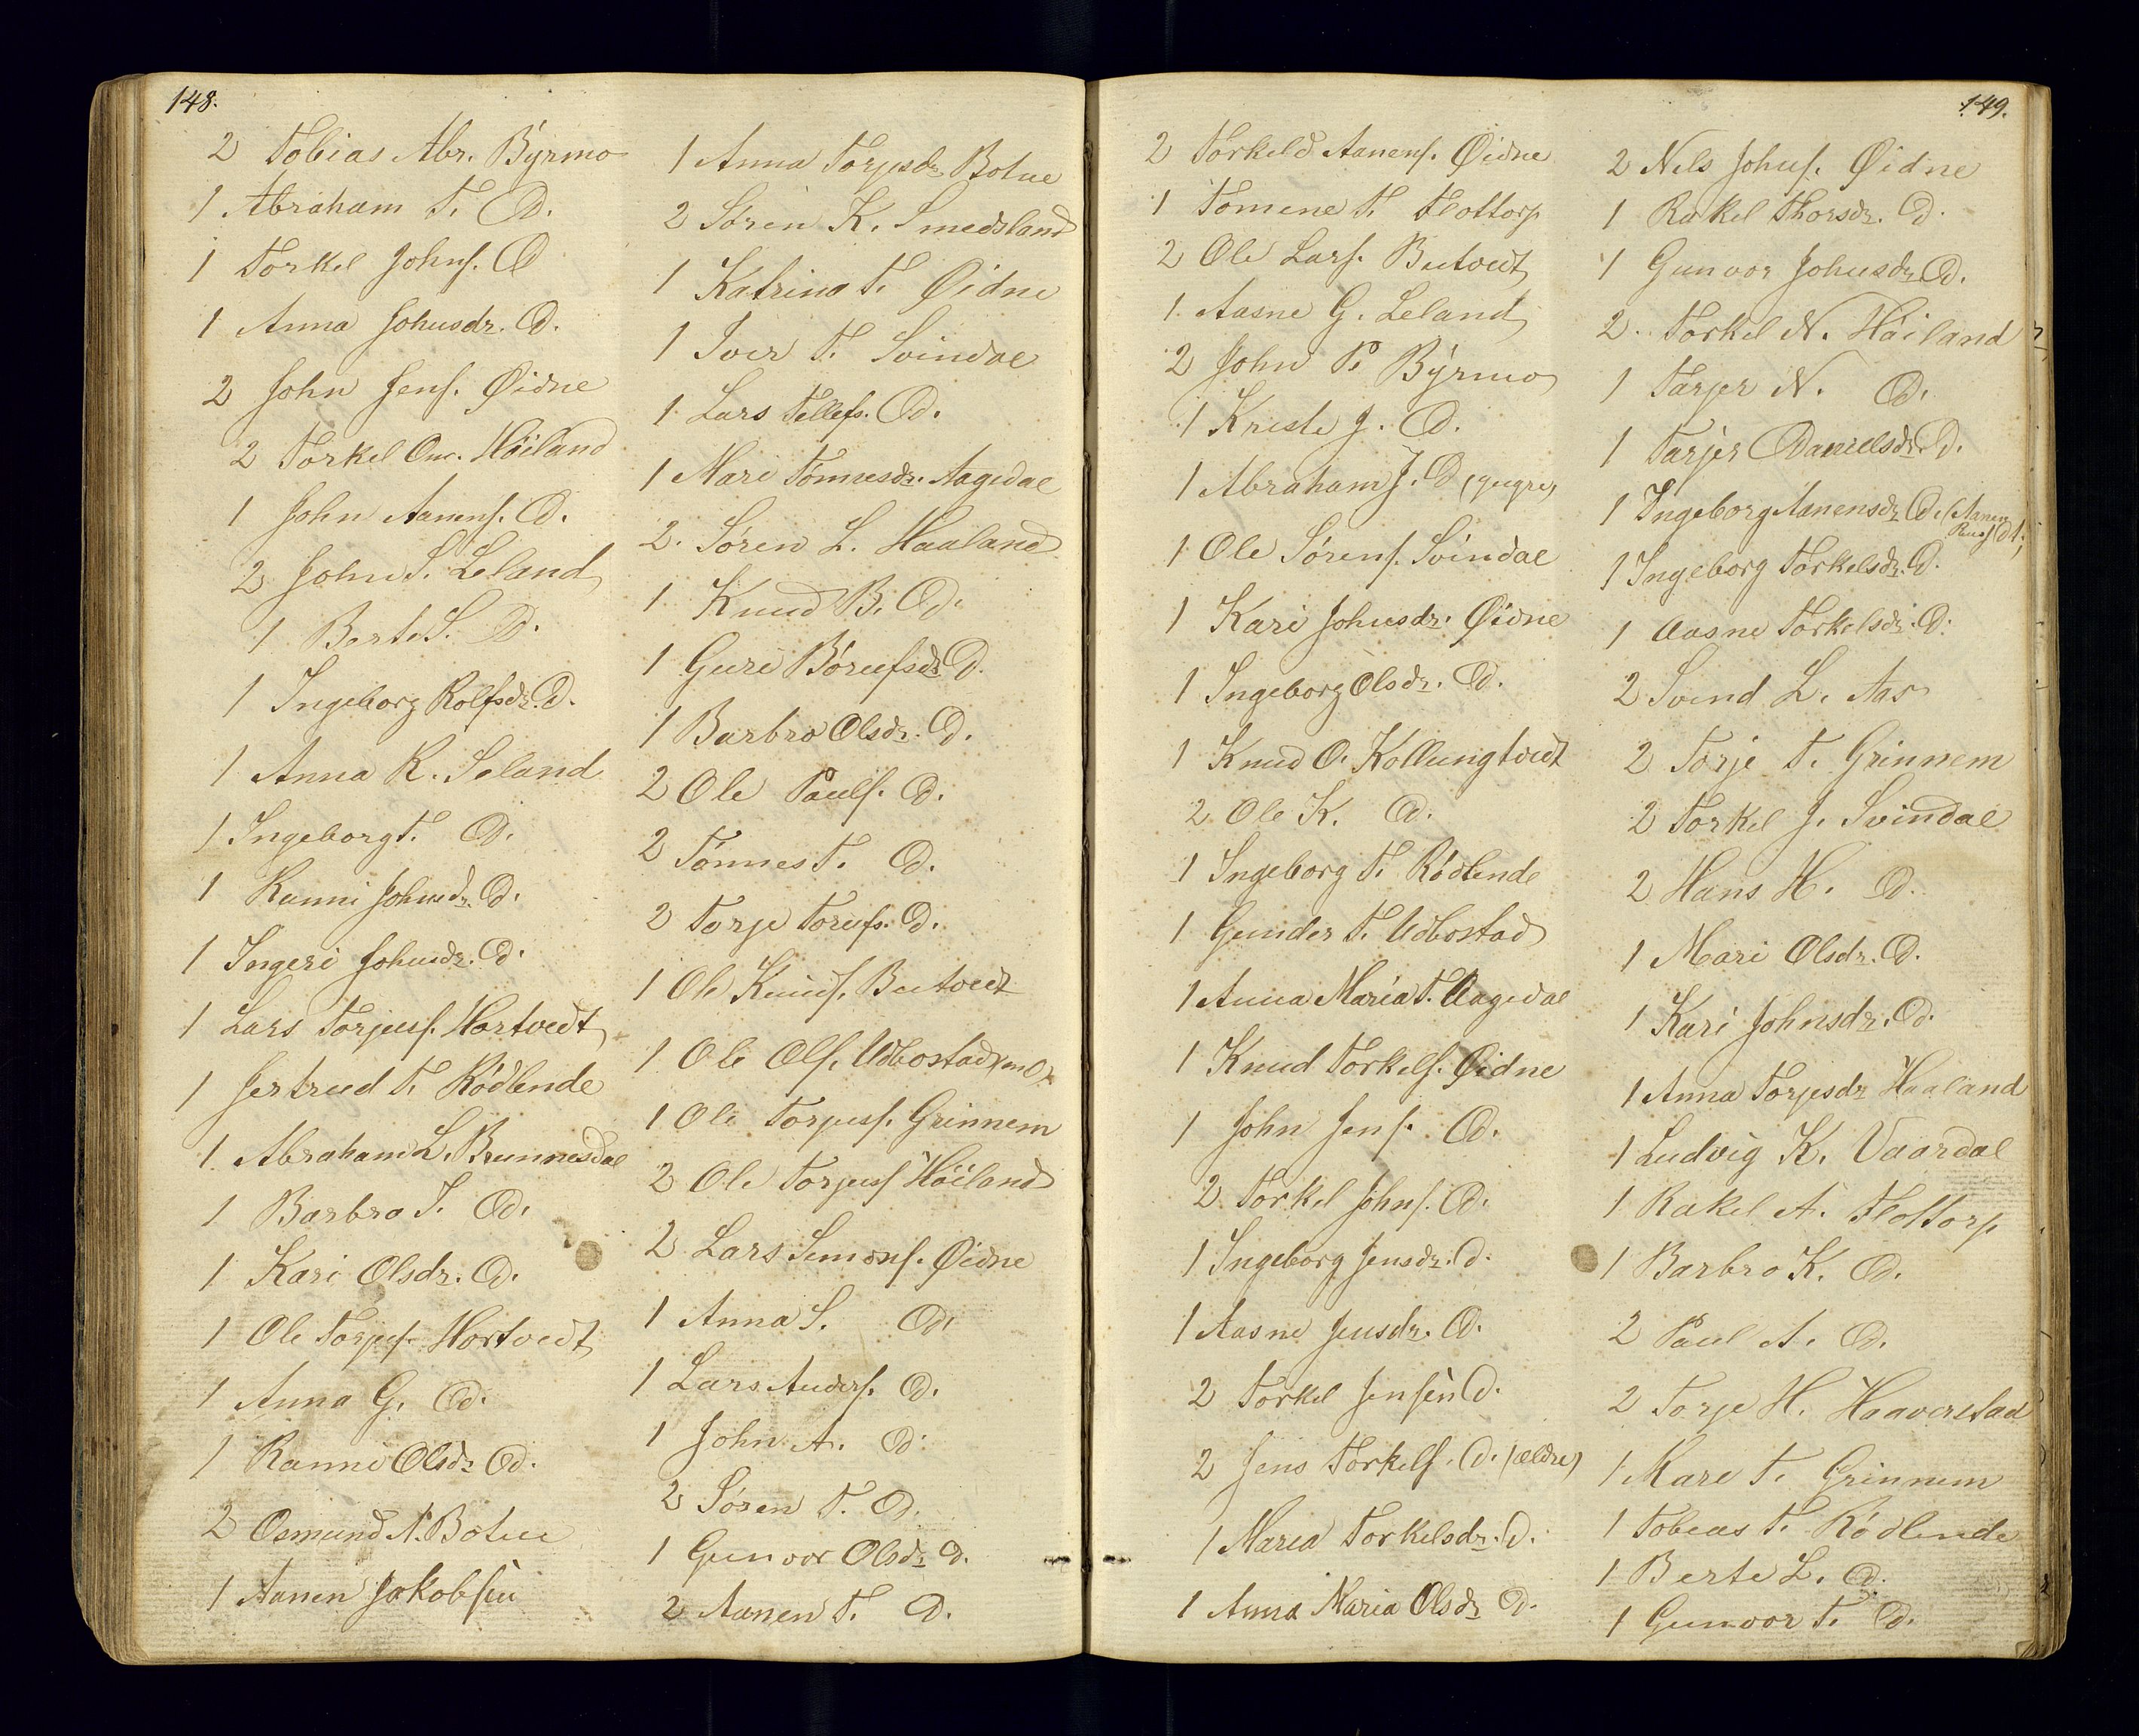 148.
2 Tobias Abr. Byrmo
1 Abraham T. D.
1 Torkel Johns. D
1 Anna Johnsdr. D.
2 John Jens. Øidne
2 Torkel Om. Höiland
1 John Aanens. D.
2 John S. Leland
1 Berte S. D.
1 Ingeborg Rolfsdr. D.
1 Anna R. Seland
1 Ingeborg T. D.
1 Ranni Johnsdr. D.
1 Ingeri Johnsdr. D.
1 Lars Torjusf. Hortvedt
1 Jertrud T. Rödlende
1. Abraham L. Brunnesdal
1 Barbro T. D.
1 Kari Olsdr. D.
1 Ole Torjusf. Hortvedt
1 Anna G. D.
1 Ranni Olsdr D.
2 Osmund N. Botne
1 Aanen Jakobsen
1 Anna Torjesdr Botne
2 Sören K. Smedsland
1 Katrina T. Øidne
1 Iver T. Svindal
1. Lars Tellefs. D.
1 Mari Tönnesdr. Aagedal
2. Sören L. Haaland
1. Knud B. D.
1 Guri Börufsdr D.
1 Barbro Olsdr. D.
2 Ole Pauls. D.
2 Tönnes T. D.
2 Torje Torufs. D.
1 Ole Knuds. Butvedt
1 Ole Ols. Udbostad
1 Ole Torjusf. Grinnem
2 Ole Torjusf Höiland
2 Lars Simons. Øidne
1 Anna S. D.
1 Lars Anders. D.
1 John A. D.
2 Sören T. D.
1 Gunvor Olsdr D.
2 Aanen T. D.
149.
2 Torkeld Aanens. Øidne
1 Tomene T. Flottorp
2 Ole Lars. Butvedt
1. Aasne G. Leland
2 John P. Byrmo
1 Kriste J. D.
1 Abraham J. D (yngre)
1 Ole Sörens. Svindal
1 Kari Johnsdr. Øidne
1 Ingeborg Olsdr. D.
1 Knud O. Kollungtvedt
2 Ole K. D.
1 Ingeborg T. Rödlende
1 Gunder T. Udbostad
1 Anna Maria T. Aagedal
1 Knud Torkels. Øidne
1 John Jens. D.
2 Torkel Johns. D.
1 Ingeborg Jensdr. D.
1 Aasne Jensdr. D.
2 Torkel Jensen D.
2 Jens Torkels. D. (ældre)
1 Maria Torkelsdr. D.
1 Anna Maria Olsdr D.
2 Nels Johns. Øidne
1 Rakel Thorsdr. D.
1 Gunvor Johnsdr. D.
2. Torkel N. Höiland
1 Tarjer N. D.
1 Tarjer Danielsdr. D.
1 Ingeborg Aanensdr D. (Aanen
1 Ingeborg Torkelsdr. D.
1 Aasne Torkelsdr. D.
2 Svend L. Aas
2 Torje T. Grinnem
2 Torkel J. Svindal
2 Hans H. D.
1 Mari Olsdr. D.
1 Kari Johnsdr. D.
1 Anna Torjesdr Haaland
1 Ludvig K. Vaardal
1 Rakel A. Flottorp
1 Barbro K. D.
2 Paul A. D.
2 Torje H. Haaverstad
1 Mare T. Grinnem
1 Tobias T. Rödlende
1 Berte L. D.
1 Gunvor T. D.